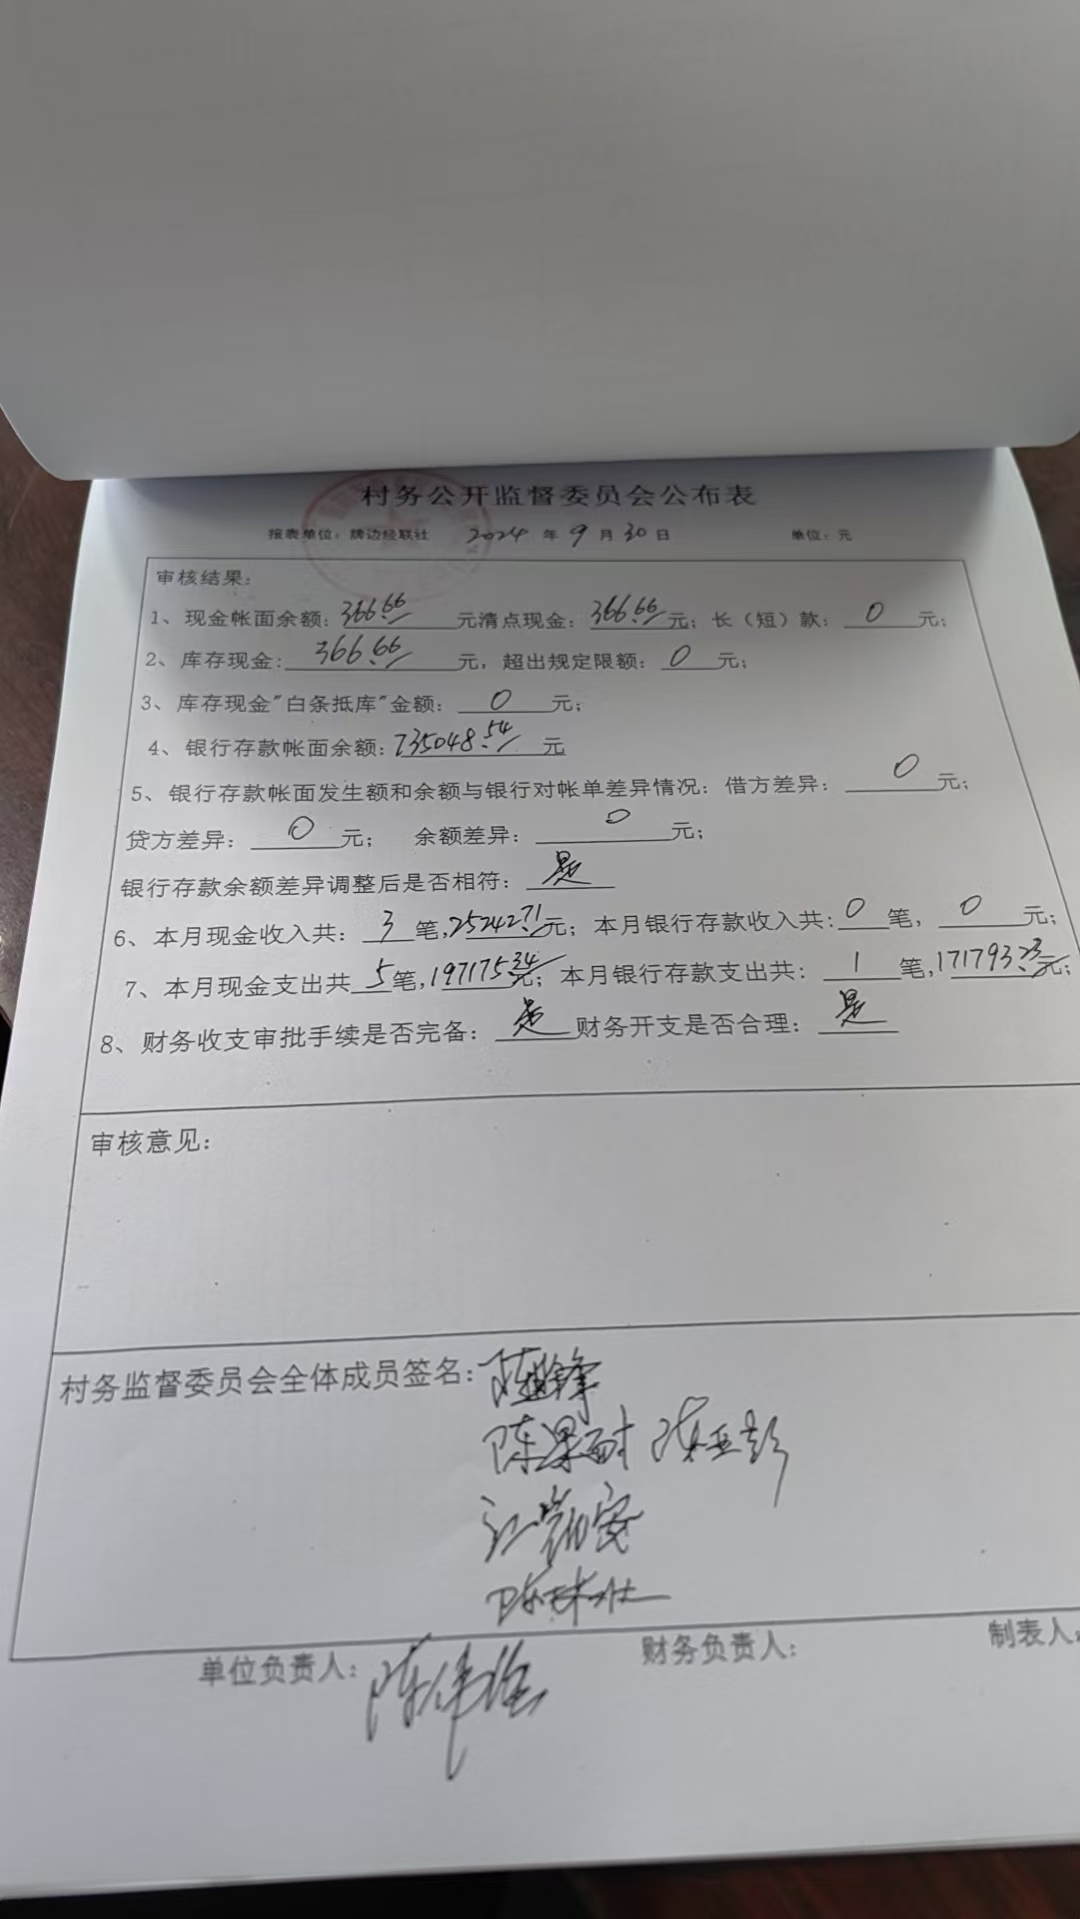 村务公开监督委员会公布表
报表单位：牌边经联社 2024 年 9 月 30 日 单位：元
审核结果：
1、现金帐面余额：366.66 元清点现金：366.66 元；长（短）款：0 元；
2、库存现金：366.66 元，超出规定限额：0 元；
3、库存现金"白条抵库"金额：0 元；
4、银行存款帐面余额：735048.54 元
5、银行存款帐面发生额和余额与银行对帐单差异情况：借方差异：0 元；
贷方差异：0 元； 余额差异：0 元；
银行存款余额差异调整后是否相符：是
6、本月现金收入共：3 笔，252427.1 元；本月银行存款收入共：0 笔，0 元；
7、本月现金支出共 5 笔，197175.34 元；本月银行存款支出共：1 笔，171793.23 元；
8、财务收支审批手续是否完备：是 财务开支是否合理：是
审核意见：
村务监督委员会全体成员签名：
陈亚彭
单位负责人： 财务负责人： 制表人